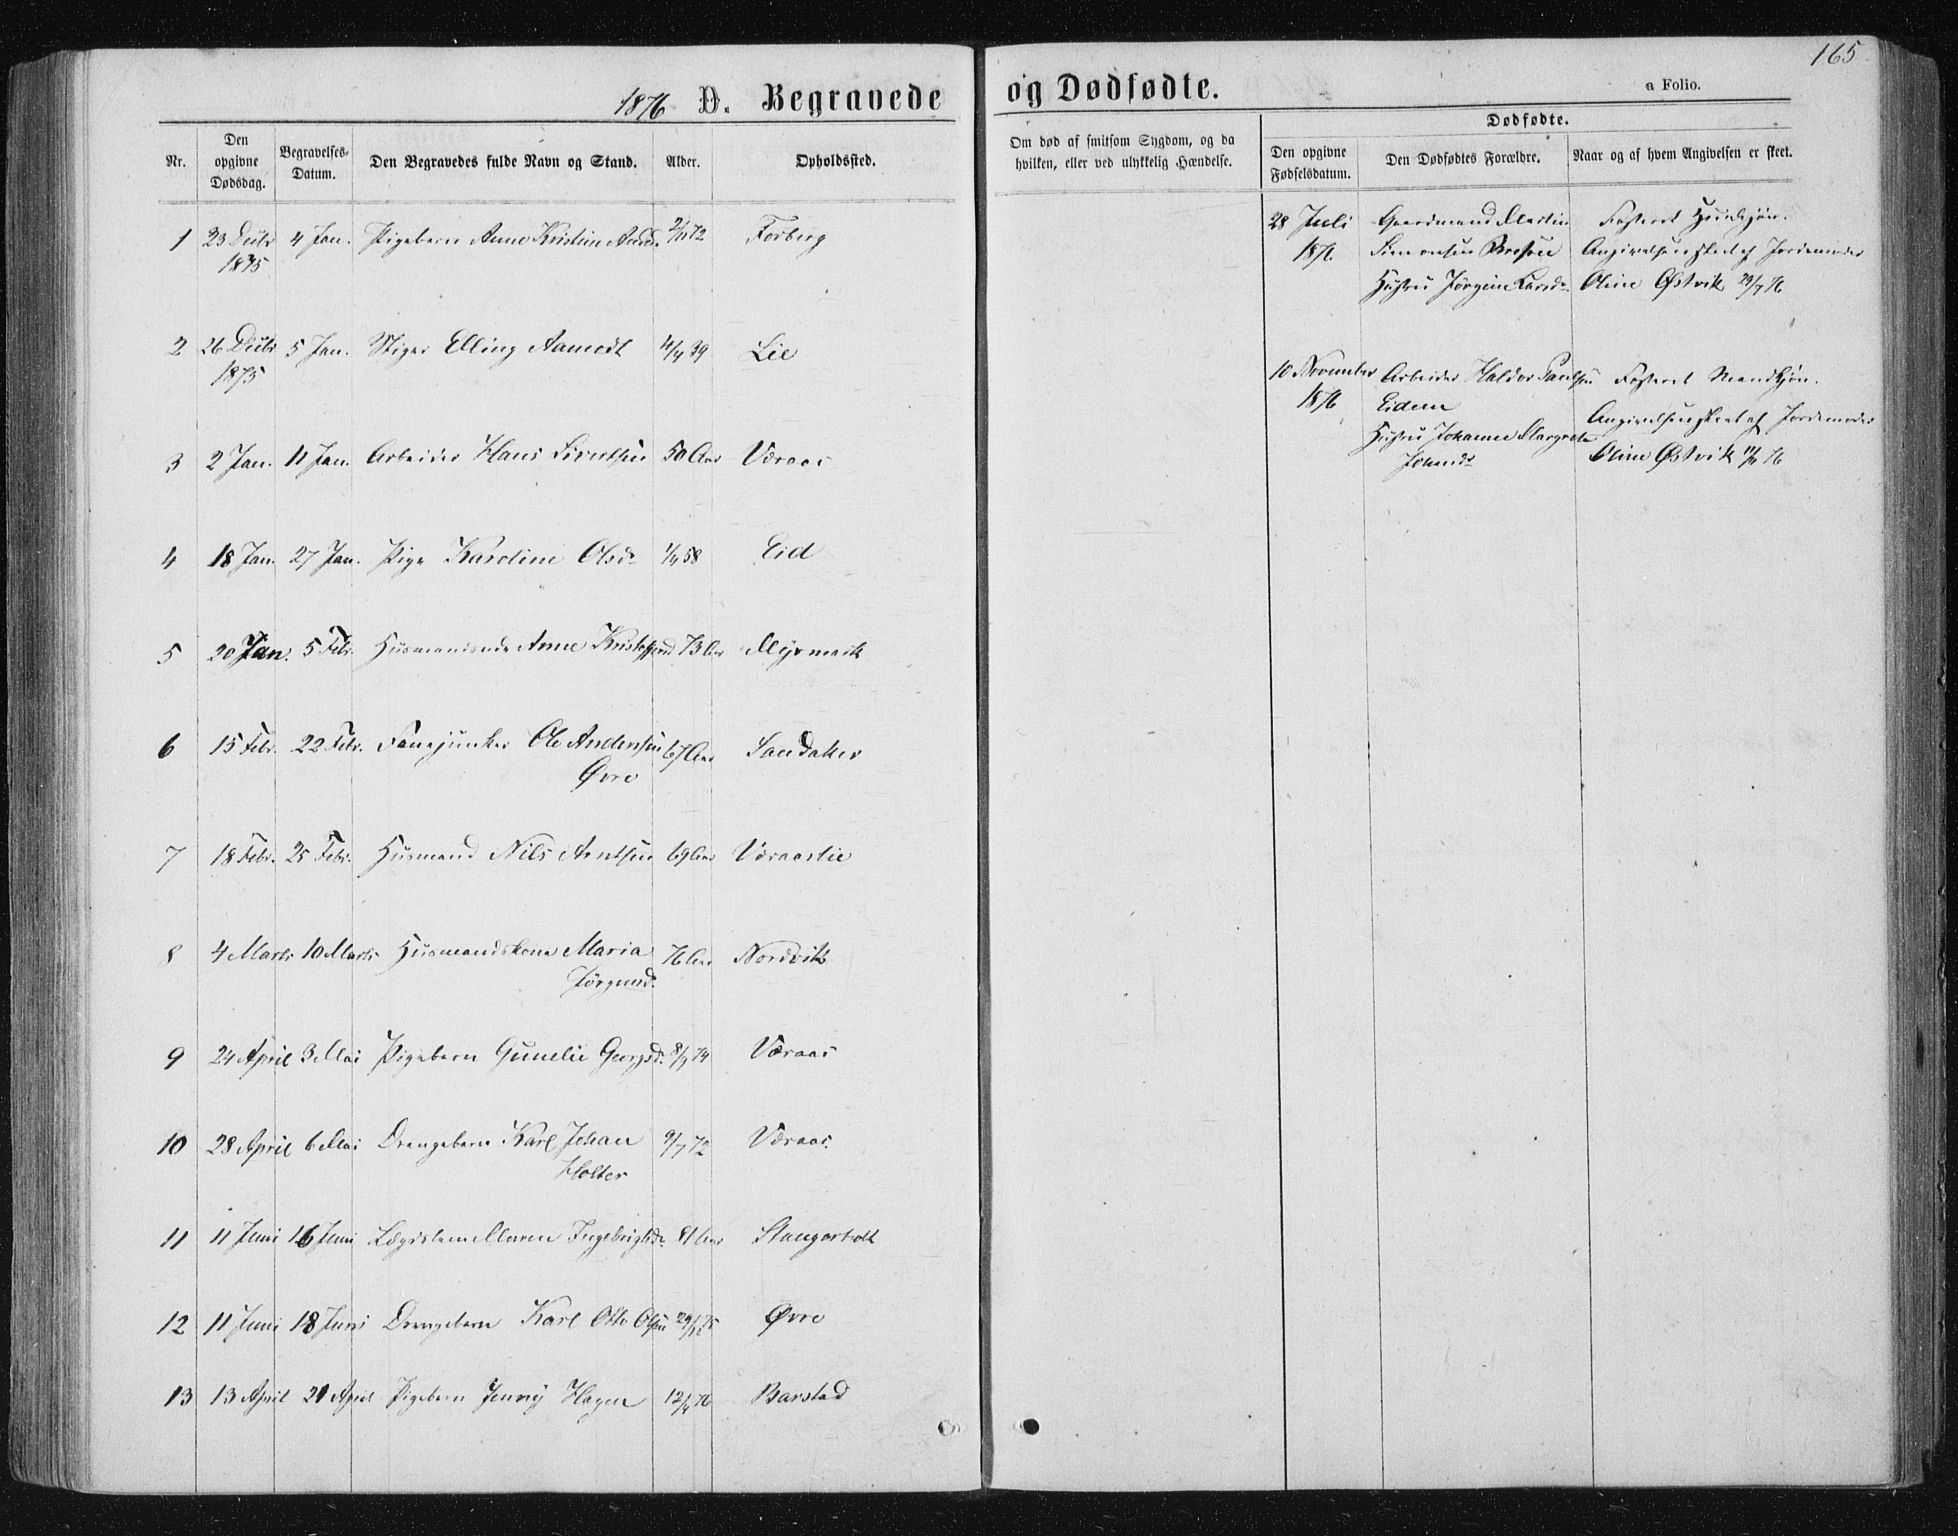 165
1876 D. Begravede og Dødfødte.
a Folio.
Nr.
Den opgivne Dødsdag.
Begravelses-Datum.
Den Begravedes fulde Navn og Stand.
Alder.
Opholdssted.
Om død af smitsom Sygdom, og da hvilken, eller ved ulykkelig Hændelse.
Dødfødte.
Den opgivne Fødselsdatum.
Den Dødfødtes Forældre.
Naar og af hvem Angivelsen er skeet.
1 23 Decbr 4 Jan. Pigebarn Anne Kristine 2/11 72 Forberg
1875
2 26 Decbr 5 Jan. Stiger Elling Aamodt 4/4 39 Lie
1875
3 2 Jan. 11 Jan. Arbeider Hans Sivertsen 50 Aar Væraas
4 18 Jan. 27 Jan. Pige Karoline Olsdr 1/4 58 Eid
5 20 Jan. 5 Febr. Anne 73 Aar Myrmark
6 15 Febr. 22 Febr. Fanejunker Ole Andersen 67 Aar Sandaker
Øvre
7 18 Febr. 25 Febr. Husmand Nils Arntsen 69 Aar Væraaslie
8 4 Marts 10 Marts Husmandskone Maria 76 Aar Nordvik
Jørgensd.
9 24 April 3 Mai Pigebarn Gunelie Georgsd. 8/9 74 Væraas
10 28 April 6 Mai Drengebarn Karl Johan 9/7 72 Væraas.
Holter
11 11 Juni 16 Juni Lægdslem Maren Ingebrigtsdr 81 Aar Stangerholt
12 11 Juni 18 Juni Drengebarn Karl Otto Olsen 29/12 75 Øvre
13 13 April 21 April Pigebarn Jenny Hagen 12/4 76 Barstad
28 Juli Gaardmand Martin Fosteret Qvindkjøn.
1876. Simonsen Angivelsen skeet af Jordemoder
Hustru Jørgine Larsdr Oline Østvik 29/7 76
10 November Arbeider Haldor Paulsen Fosteret Mandkjøn.
1876 Eidem
Angivelsen skeet af Jordemoder
Hustru Johanne Margrete
Johansdr Oline Østvik 11/11 76